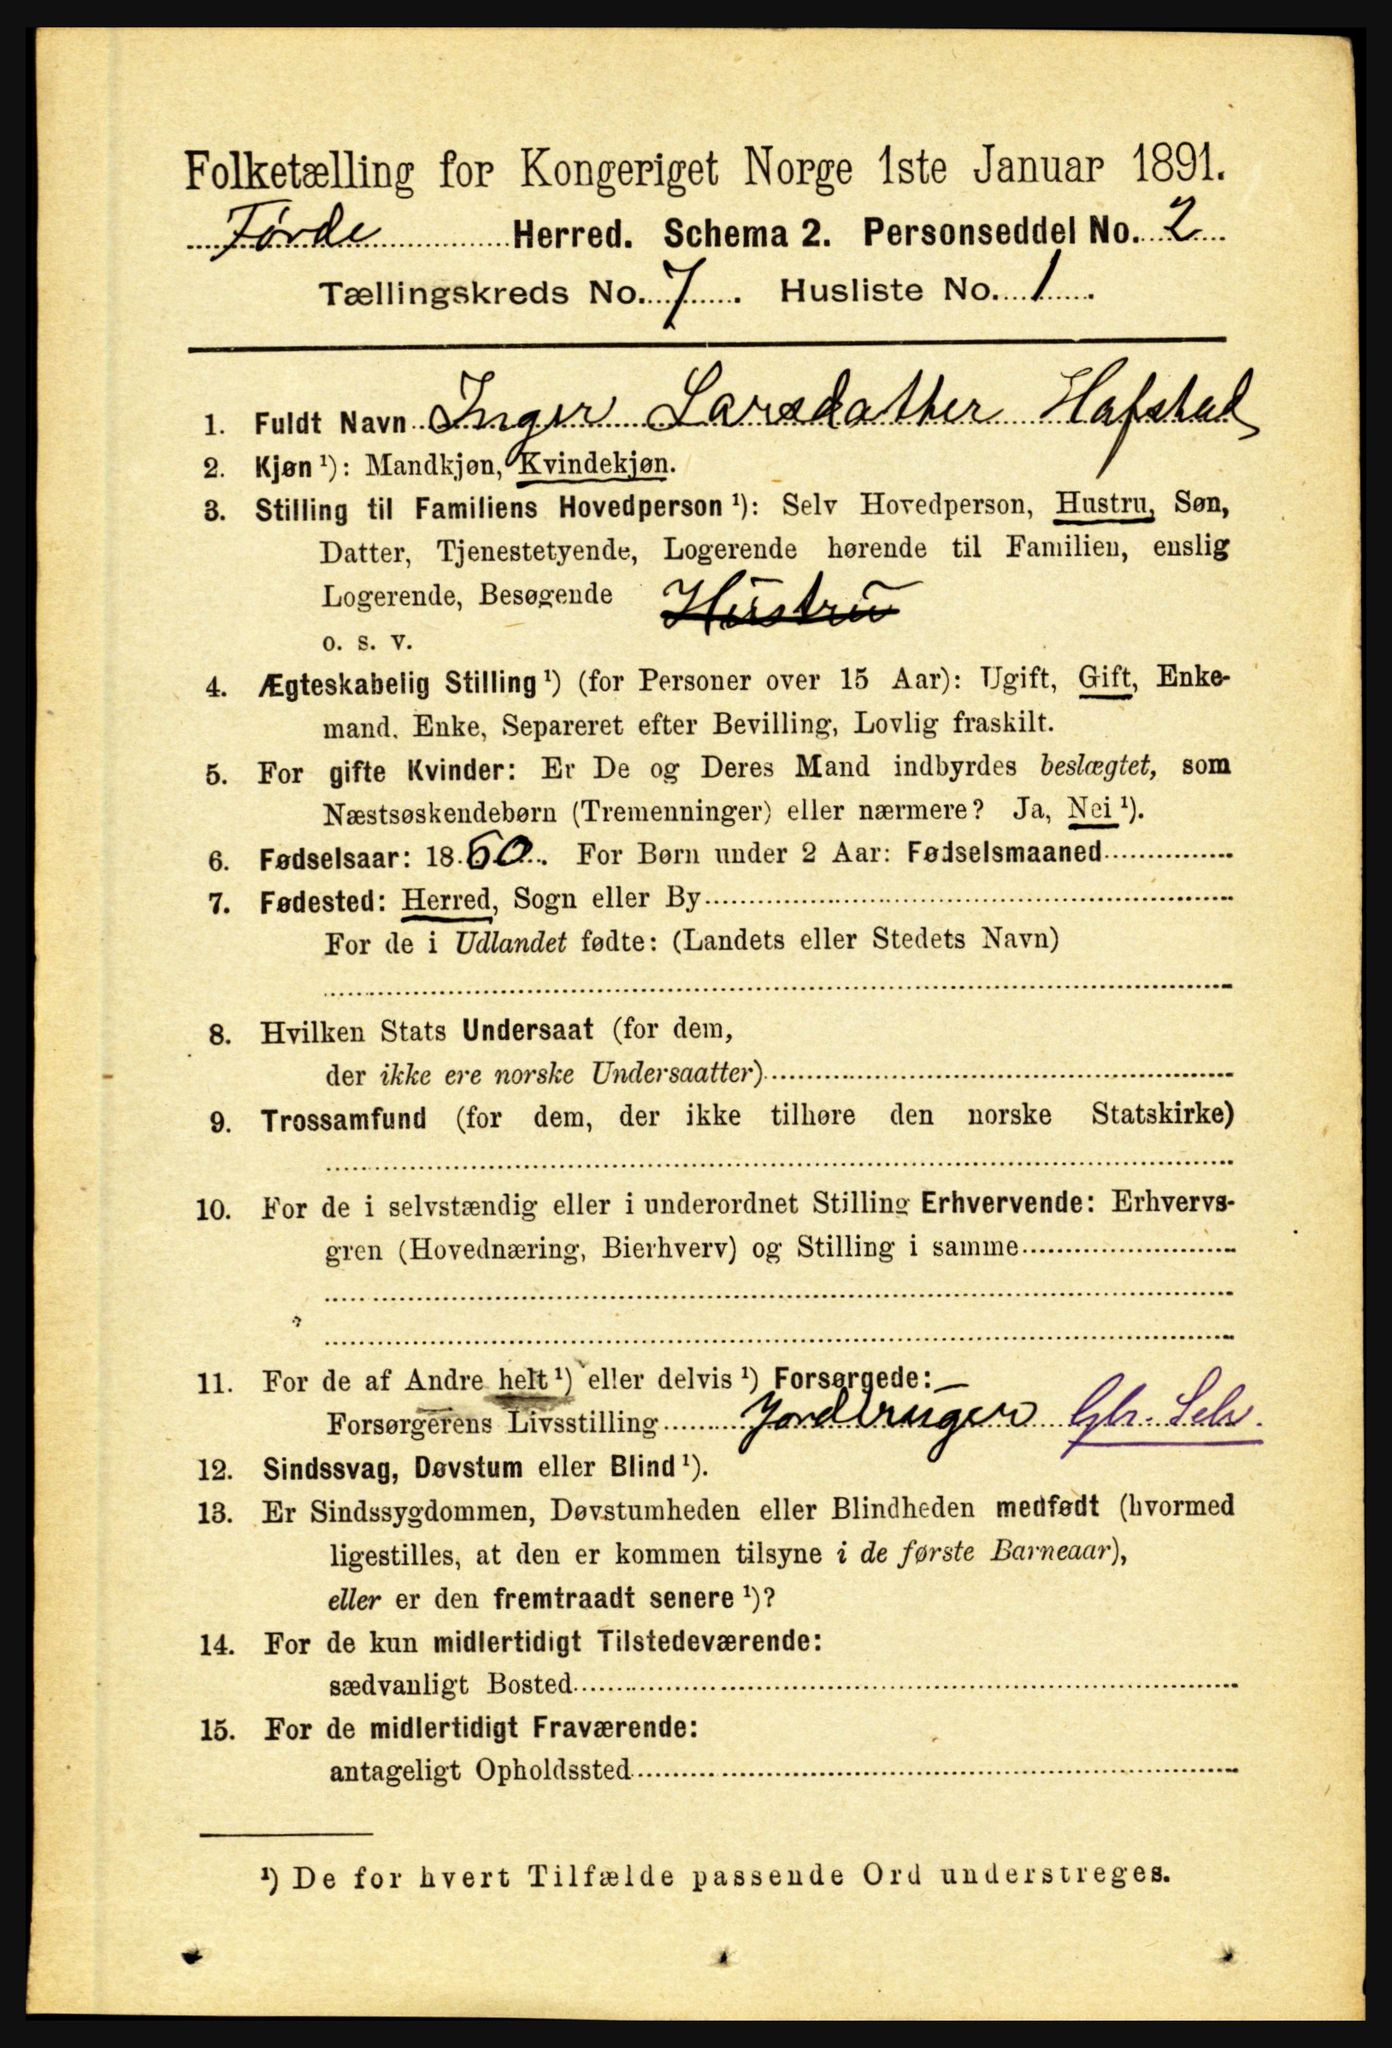 Folketælling for Kongeriget Norge 1ste Januar 1891.
Førde Herred. Schema 2. Personseddel No. 2
Tællingskreds No. 7. Husliste No. 1.
1. Fuldt Navn Inger Larsdatter Hafstad
2. Kjøn ¹): Mandkjøn, Kvindekjøn.
3. Stilling til Familiens Hovedperson ¹): Selv Hovedperson, Hustru, Søn,
Datter, Tjenestetyende, Logerende hørende til Familien, enslig
Logerende, Besøgende Hustru
o. s. v.
4. Ægteskabelig Stilling ¹) (for Personer over 15 Aar): Ugift, Gift, Enke-
mand. Enke, Separeret efter Bevilling, Lovlig fraskilt.
5. For gifte Kvinder: Er De og Deres Mand indbyrdes beslægtet, som
Næstsøskendebørn (Tremenninger) eller nærmere? Ja, Nei ¹).
6. Fødselsaar: 1860. For Børn under 2 Aar: Fødselsmaaned
7. Fødested: Herred, Sogn eller By
For de i Udlandet fødte: (Landets eller Stedets Navn)
8. Hvilken Stats Undersaat (for dem,
der ikke ere norske Undersaatter)
9. Trossamfund (for dem, der ikke tilhøre den norske Statskirke)
10. For de i selvstændig eller i underordnet Stilling Erhvervende: Erhvervs-
gren (Hovednæring, Bierhverv) og Stilling i samme
11. For de af Andre helt ¹) eller delvis ¹) Forsørgede: —
Forsørgerens Livsstilling Jordbruger Gbr. Selv.
12. Sindssvag, Døvstum eller Blind ¹).
13. Er Sindssygdommen, Døvstumheden eller Blindheden medfødt (hvormed
ligestilles, at den er kommen tilsyne i de første Barneaar),
eller er den fremtraadt senere ¹)?
14. For de kun midlertidigt Tilstedeværende:
sædvanligt Bosted
15. For de midlertidigt Fraværende:
antageligt Opholdssted
¹) De for hvert Tilfælde passende Ord understreges.